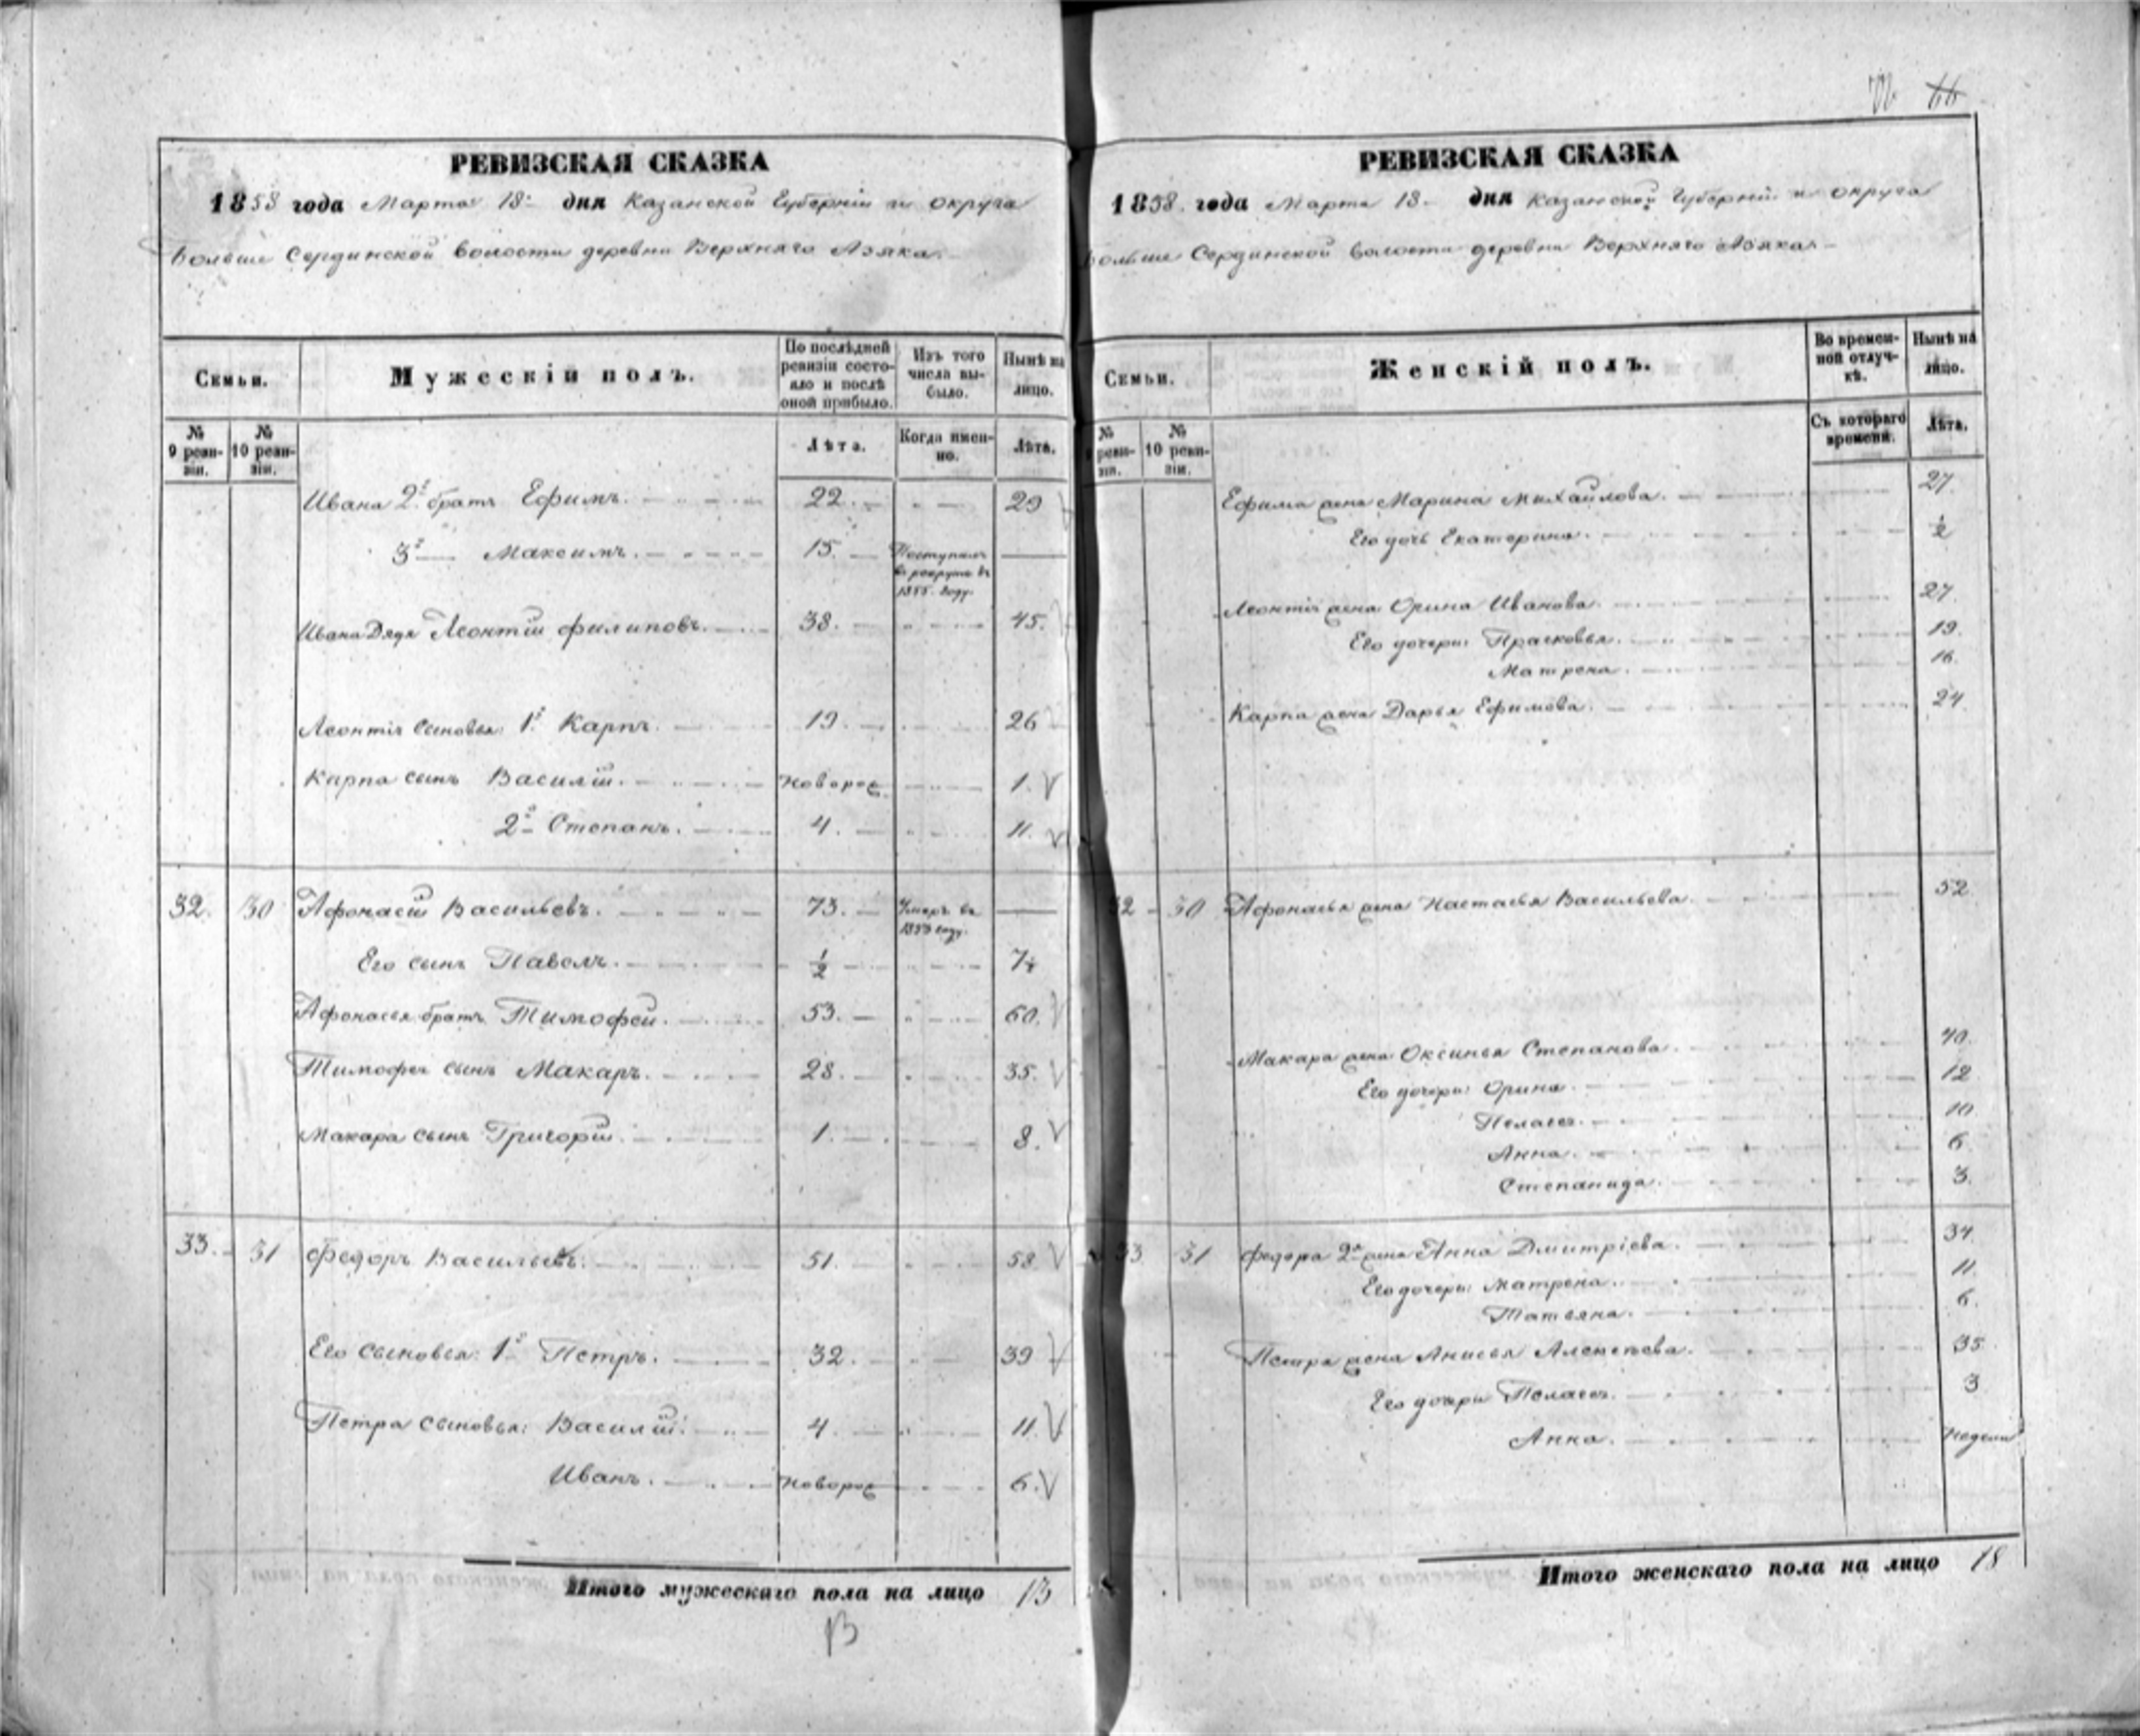 66
РЕВИЗСКАЯ СКАЗКА
1858 года Марта 18 дня Казанской Губерніи и округа
Больше Сердинской волости деревни Верхняго Азяка.
Семьи. Мужескій полъ. По послѣдней ревизіи состояло и послѣ оной прибыло. Изъ того числа выбыло. Нынѣ на лицо.
№ 9 ревизіи. № 10 ревизіи. Лѣта. Когда именно. Лѣта.
Ивана 2й братъ Ефимъ. 22. 29
3й Максимъ. 15. Поступилъ
в рекруты въ
1855. году.
Ивана Дядя Леонтій Филиповъ. 38. 45.
Леонтія сыновья: 1й Карпъ. 19. 26
Карпа сынъ Василій. новорож 1.
2й Степанъ. 4. 11.
32. 30 Афонасій Васильевъ. 73. Умеръ въ
1853 году.
Его сынъ Павелъ. 1/2 7 1/2
Афонасья братъ Тимофей. 53. 60.
Тимофея сынъ Макаръ. 28. 35.
Макара сынъ Григорій. 1. 8.
33. 31 Федоръ Васильевъ. 51. 58
Его сыновья: 1й Петръ. 32. 39
Петра сыновья: Василій. 4. 11.
Иванъ. новорож 6.
Итого мужескаго пола на лицо 13
13
РЕВИЗСКАЯ СКАЗКА
1858 года Марта 18 дня Казанской Губерніи и округа
Больше Сердинской волости деревни Верхняго Азяка
Семьи. Женскій полъ. Во временной отлучкѣ. Нынѣ на лицо.
№ 9 ревизіи. № 10 ревизіи. Съ котораго времени. Лѣта.
Ефима жена Марина Михайлова. 27.
Его дочь Екатерина. 1/2
Леонтія жена Орина Иванова. 27.
Его дочери: Прасковья. 19.
Матрена. 16.
Карпа жена Дарья Ефимова. 24
32 30 Афонасья жена Настасья Васильева. 52
Макара жена Оксинья Степанова. 40.
Его дочери: Орина. 12
Пелагея. 10
Анна. 6.
Степанида. 3.
33 31 Федора 2я жена Анна Дмитріева. 34.
Его дочери: Матрена. 11.
Татьяна. 6.
Петра жена Анисья Алексѣева. 35
Его дочери Пелагея. 3
Анна. недели
Итого женскаго пола на лицо 18